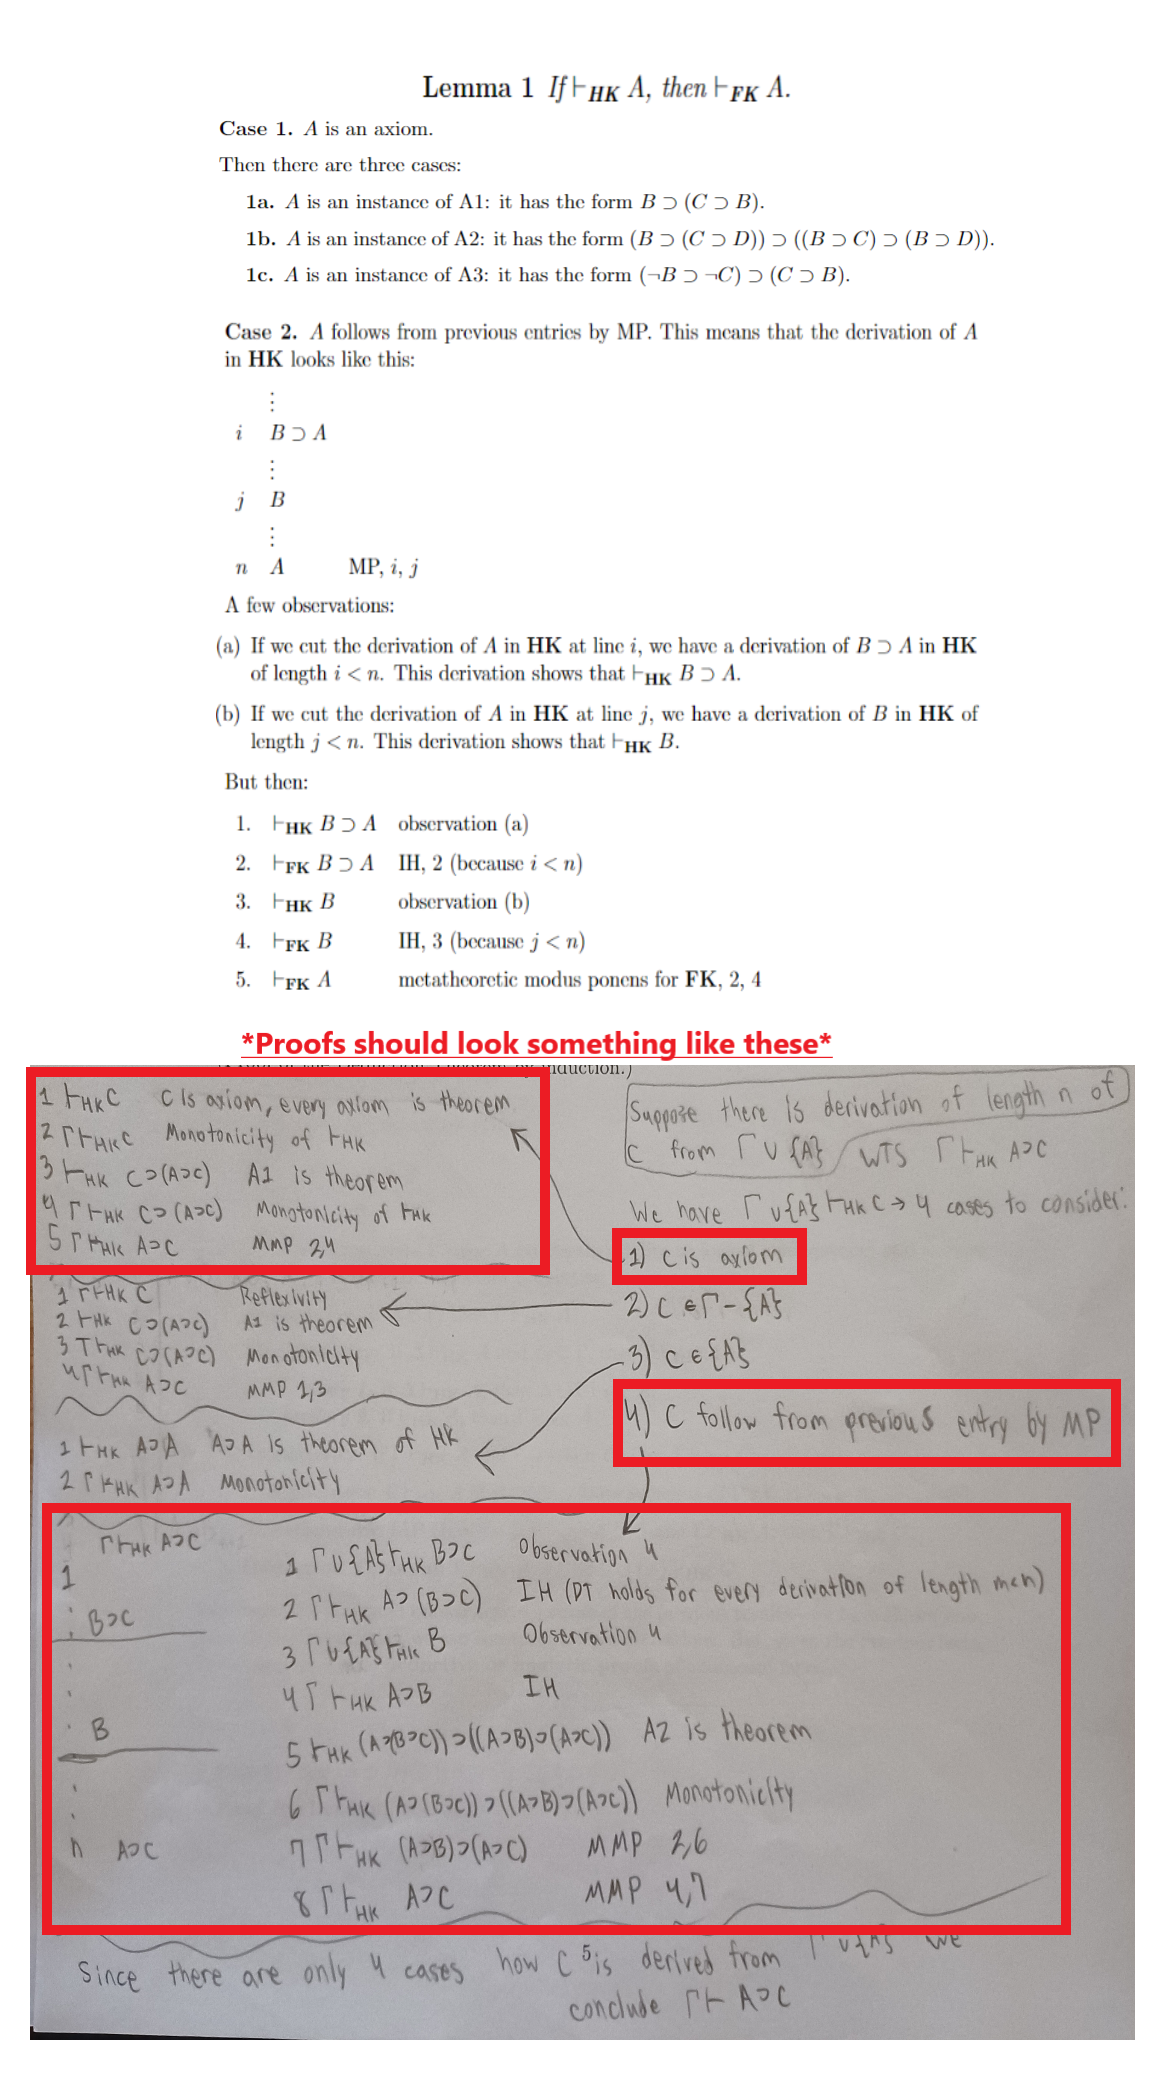 Lemma 1 If ⊢HK A, then ⊢FK A.
Case 1. A is an axiom.
Then there are three cases:
1a. A is an instance of A1: it has the form B ⊃ (C ⊃ B).
1b. A is an instance of A2: it has the form (B ⊃ (C ⊃ D)) ⊃ ((B ⊃ C) ⊃ (B ⊃ D)).
1c. A is an instance of A3: it has the form (¬B ⊃ ¬C) ⊃ (C ⊃ B).
Case 2. A follows from previous entries by MP. This means that the derivation of A
in HK looks like this:
⋮
i B ⊃ A
⋮
j B
⋮
n A MP, i, j
A few observations:
(a) If we cut the derivation of A in HK at line i, we have a derivation of B ⊃ A in HK
of length i < n. This derivation shows that ⊢HK B ⊃ A.
(b) If we cut the derivation of A in HK at line j, we have a derivation of B in HK of
length j < n. This derivation shows that ⊢HK B.
But then:
1. ⊢HK B ⊃ A observation (a)
2. ⊢FK B ⊃ A IH, 2 (because i < n)
3. ⊢HK B observation (b)
4. ⊢FK B IH, 3 (because j < n)
5. ⊢FK A metatheoretic modus ponens for FK, 2, 4
*Proofs should look something like these*
induction.)
1 ⊢HK C C is axiom, every axiom is theorem
2 Γ⊢HK C Monotonicity of ⊢HK
3 ⊢HK C⊃(A⊃C) A1 is theorem
4 Γ⊢HK C⊃(A⊃C) Monotonicity of ⊢HK
5 Γ⊢HK A⊃C MMP 2,4
Suppose there is derivation of length n of
C from Γ∪{A} WTS Γ⊢HK A⊃C
We have Γ∪{A}⊢HK C → 4 cases to consider:
1) C is axiom
2) C ∈ Γ-{A}
3) C ∈ {A}
4) C follow from previous entry by MP
1 Γ⊢HK C Reflexivity
2 ⊢HK C⊃(A⊃C) A1 is theorem
3 Γ⊢HK C⊃(A⊃C) Monotonicity
4 Γ⊢HK A⊃C MMP 1,3
1 ⊢HK A⊃A A⊃A is theorem of HK
2 Γ⊢HK A⊃A Monotonicity
Γ⊢HK A⊃C
1
⋮ B⊃C
⋮ B
⋮
n A⊃C
1 Γ∪{A}⊢HK B⊃C Observation 4
2 Γ⊢HK A⊃(B⊃C) IH (DT holds for every derivation of length m<n)
3 Γ∪{A}⊢HK B Observation 4
4 Γ⊢HK A⊃B IH
5 ⊢HK (A⊃(B⊃C))⊃((A⊃B)⊃(A⊃C)) A2 is theorem
6 Γ⊢HK (A⊃(B⊃C))⊃((A⊃B)⊃(A⊃C)) Monotonicity
7 Γ⊢HK (A⊃B)⊃(A⊃C) MMP 2,6
8 Γ⊢HK A⊃C MMP 4,7
Since there are only 4 cases how C is derived from Γ∪{A} we
5
conclude Γ⊢ A⊃C